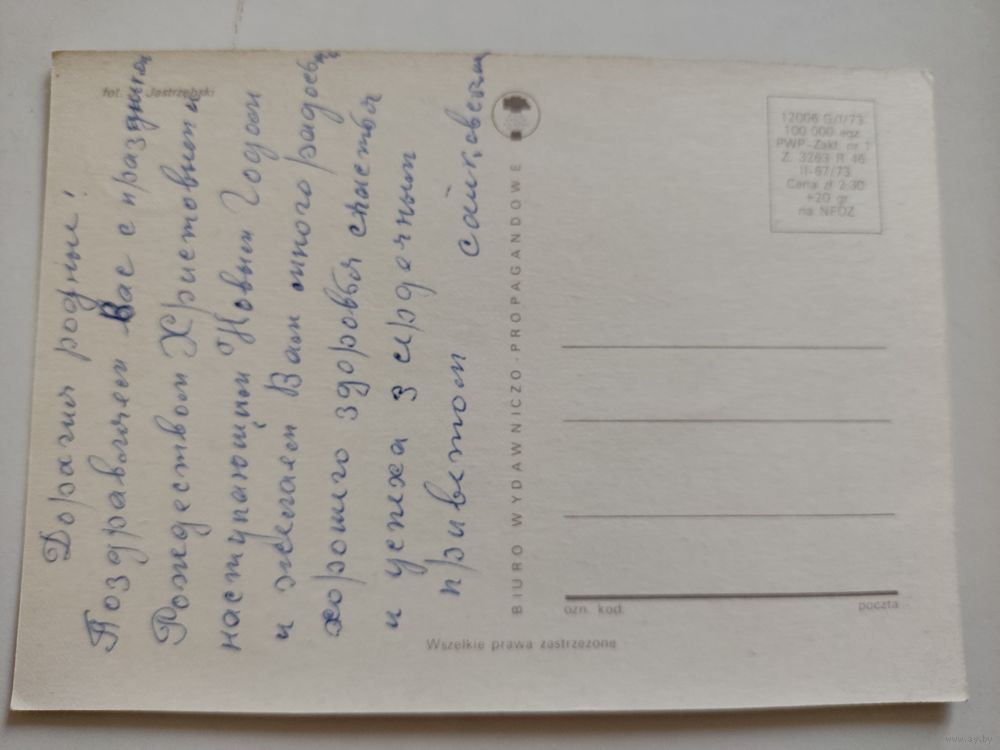 Дорагия родные!
Поздравляем Вас с праздником
Рождеством Христовым и
наступающим Новым Годом
и желаем Вам много радости
хорошего здоровья счастья
и успеха з сердечным
приветом
fot. Jastrzębski
BIURO WYDAWNICZO-PROPAGANDOWE
Wszelkie prawa zastrzeżone
12006 G/I/73
100 000 egz.
PWP-Zakł. nr 1
Z. 3263 R 46
II-67/73
Cena zł 2,30
+20 gr
na NFOZ
ozn. kod.
poczta
www.ay.by